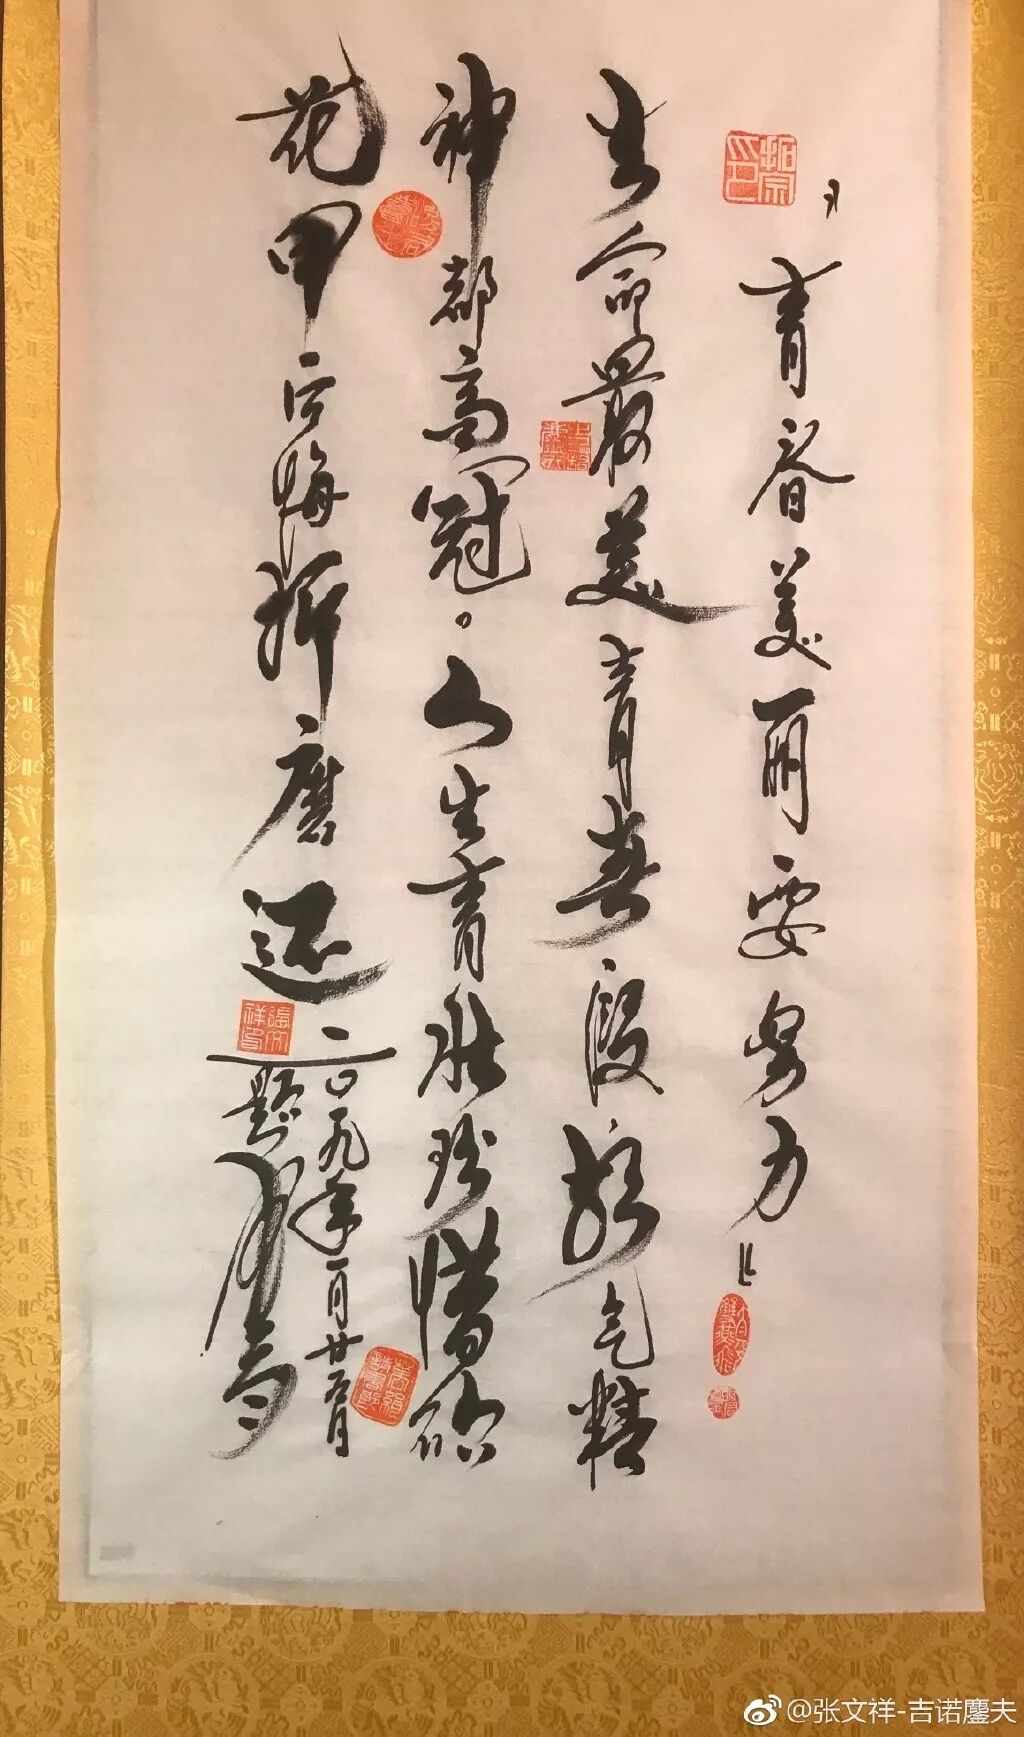 "青春美丽要努力"
生命最美青春段气精
神都高冠。人生青壮珍惜
花甲悔折磨还
二〇一九年一月廿
题
張文祥印
@张文祥-吉诺鏖夫